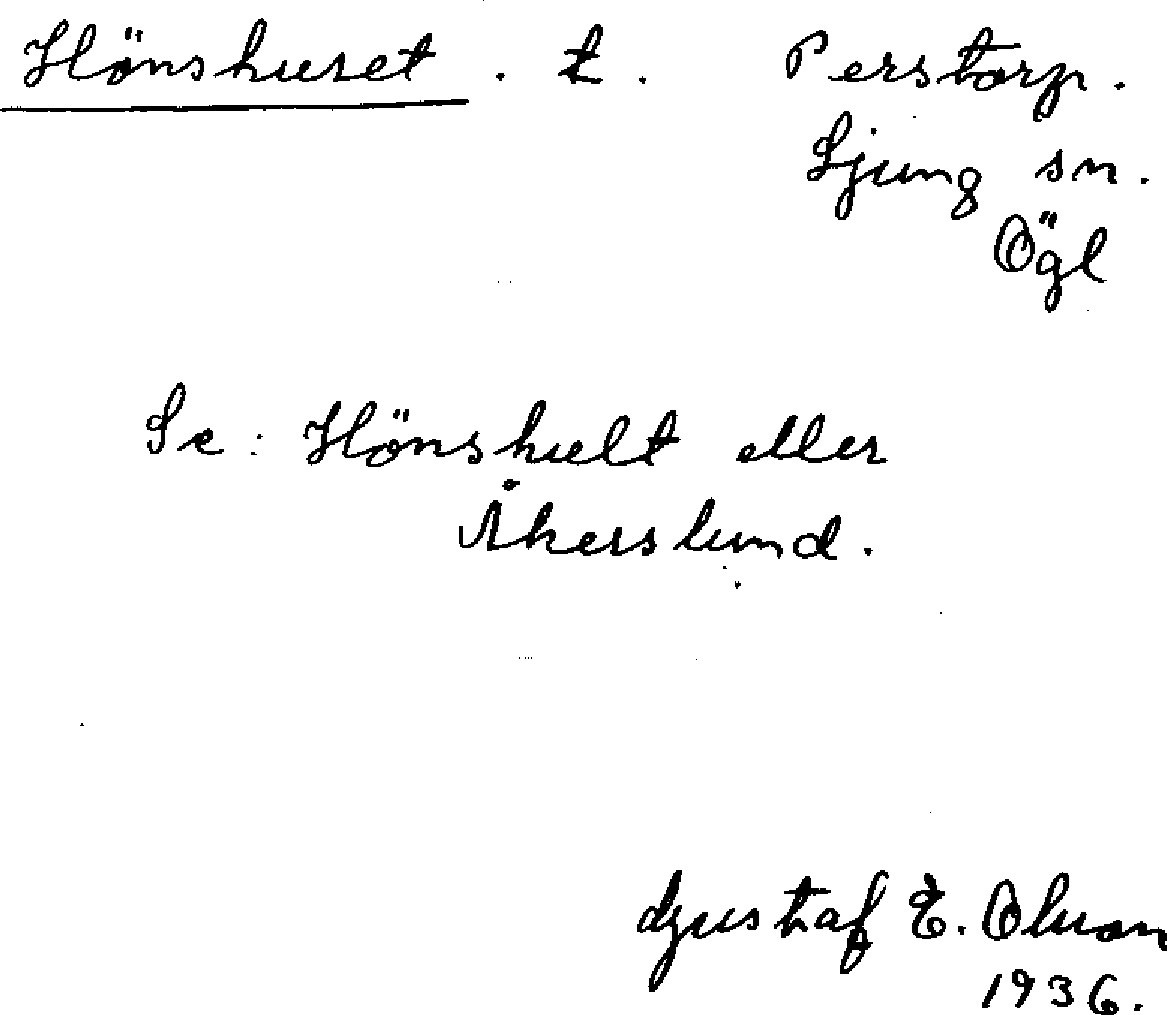 Hönshuset . t . Perstorp .
Ljung sn .
Ögl
Se : Hönshult eller
Åkerslund .
Gustaf E. Olson
1936.